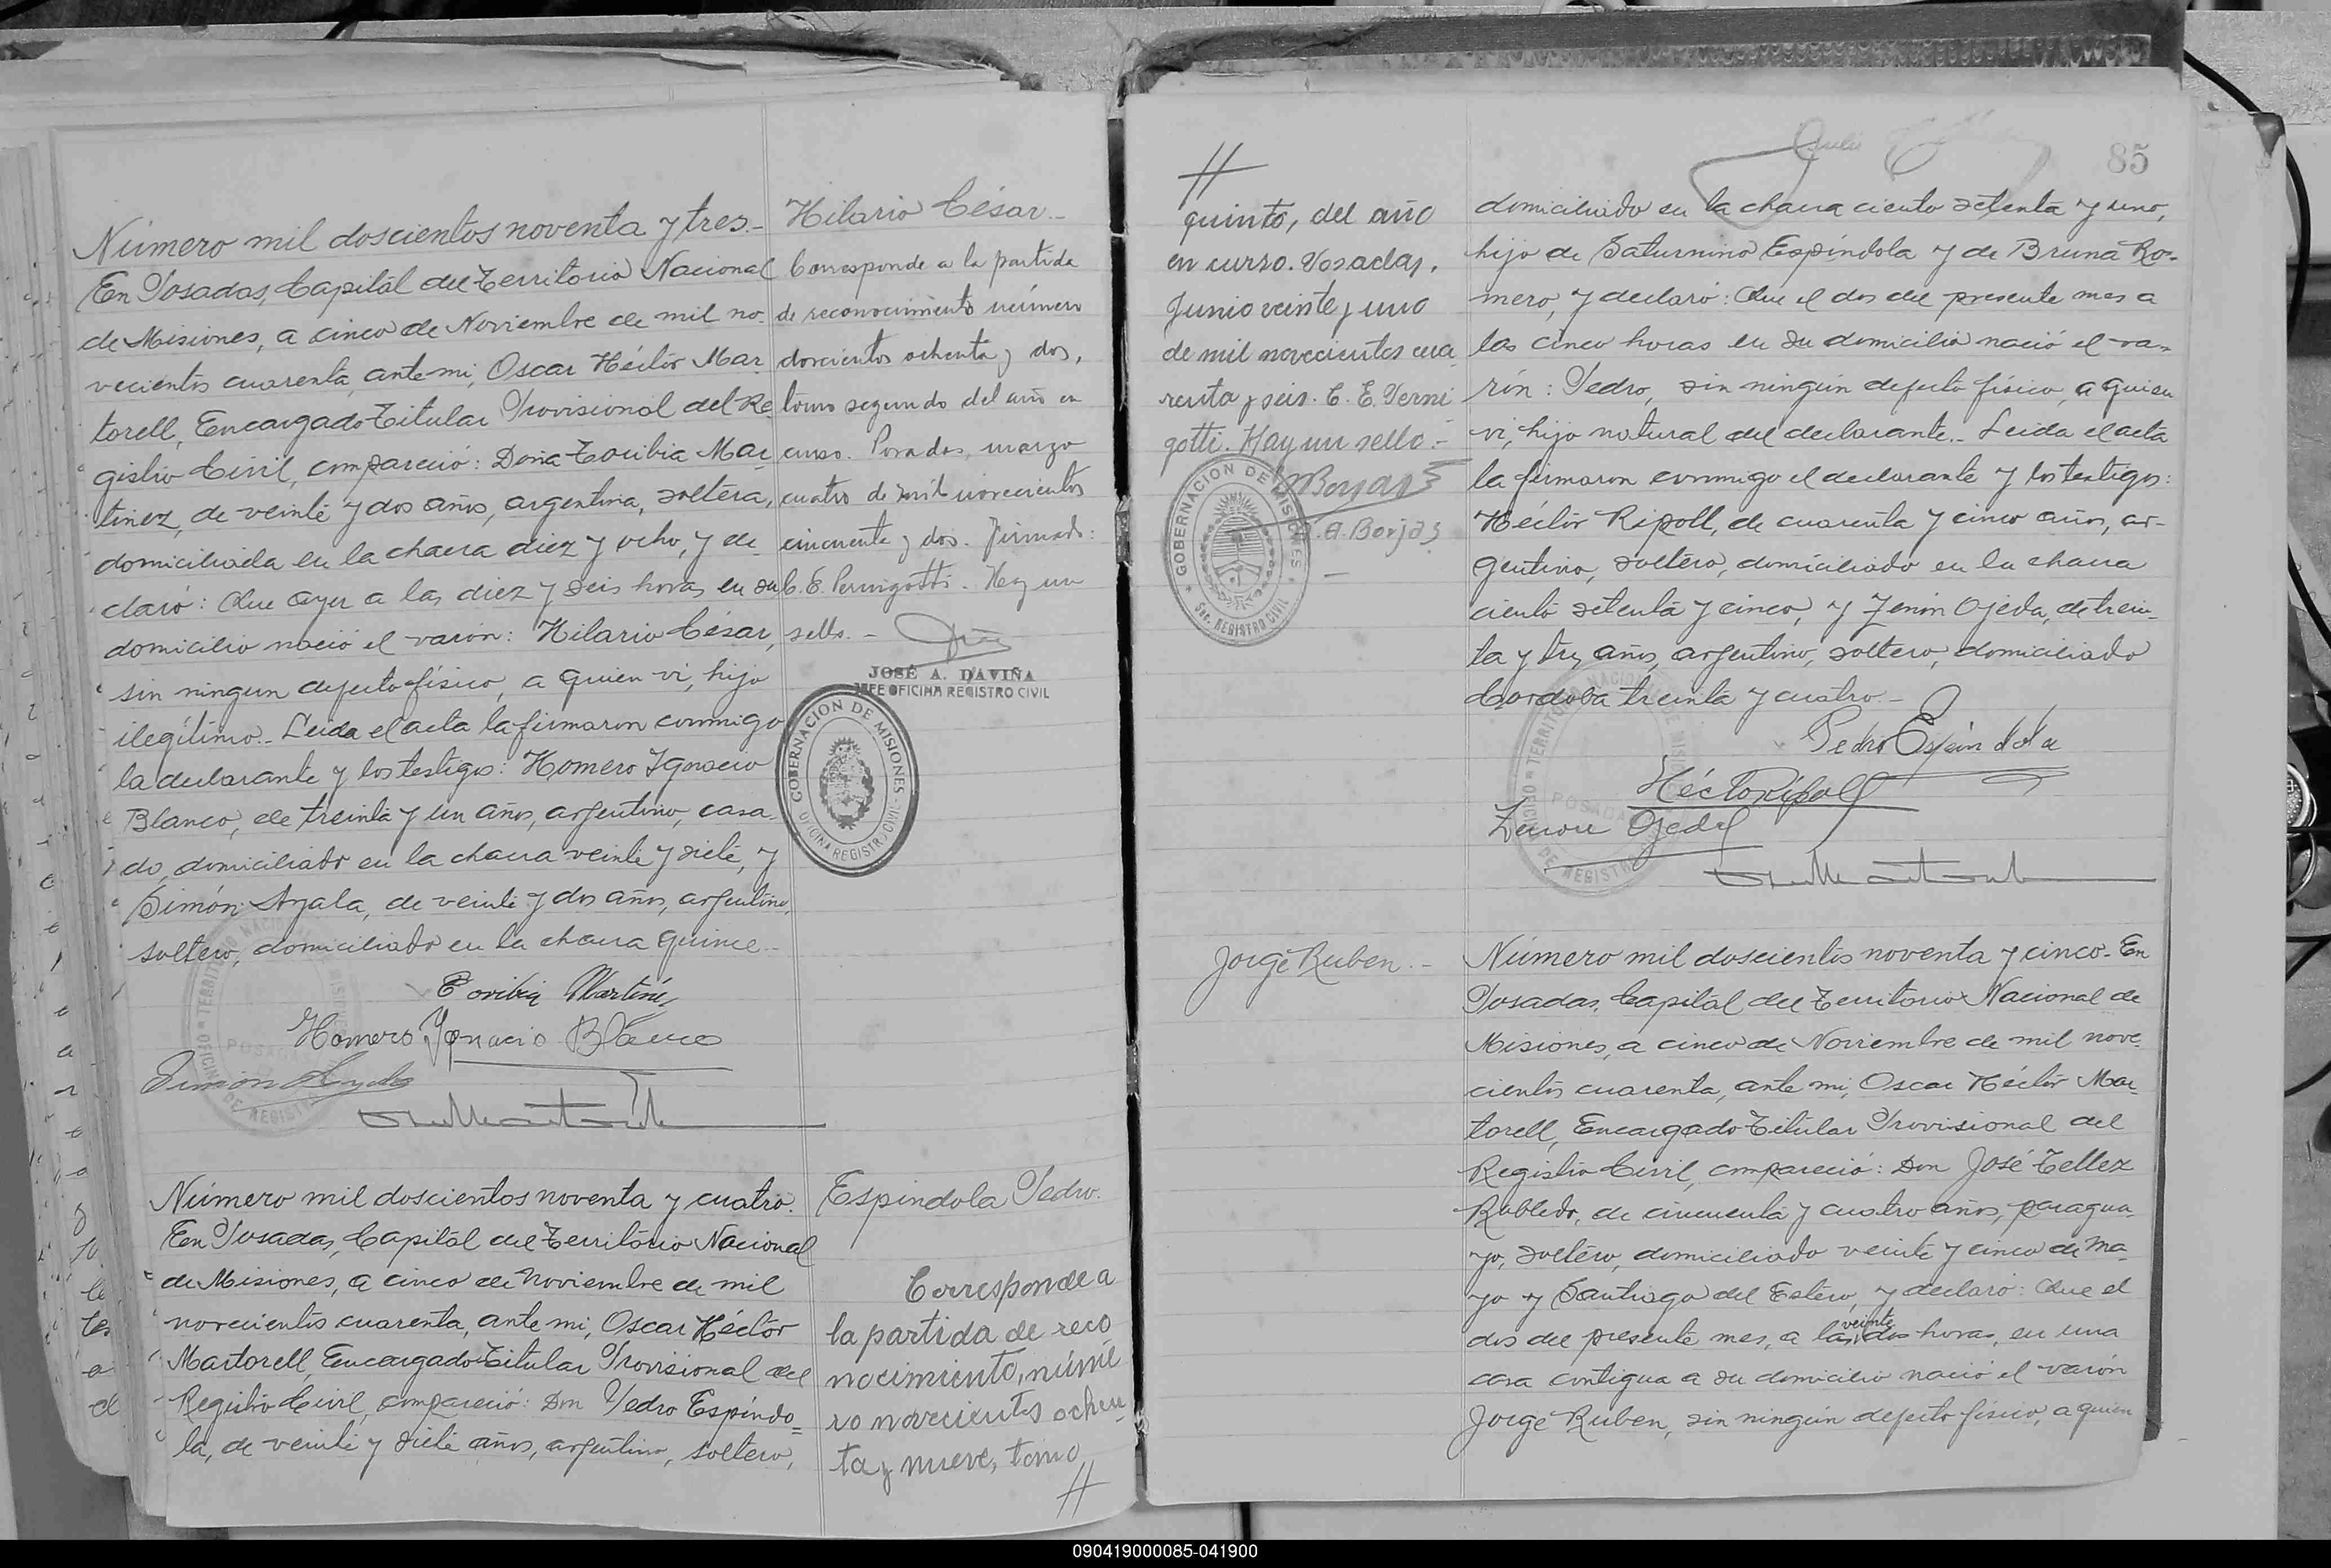 Número mil doscientos noventa y tres.-
En Posadas, Capital del Territorio Nacional
de Misiones, a cinco de Noviembre de mil no-
vecientos cuarenta, ante mi, Oscar Héctor Mar
torell, Encargado Titular Provisional del Re
gistro Civil, compareció: Doña Toribia Mar
tinez, de veinte y dos años, argentina, soltera,
domiciliada en la chacra diez y ocho, y de
claró: Que ayer a las diez y seis horas en su
domicilio nació el varón: Hilario César,
sin ningun defecto físico, a quien vi, hijo
ilegítimo.- Leida el acta la firmaron conmigo
la declarante y los testigos: Homero Ygnacio
Blanco, de treinta y un años, argentino, casa-
do, domiciliado en la chacra veinte y siete, y
Simón Ayala, de veinte y dos años, argentino,
soltero, domiciliado en la chacra quince.-
Toribia Martinez
Homero Ygnacio Blanco
Simon Ayala
Hilario César.-
Corresponde a la partida
de reconocimiento número
doscientos ochenta y dos,
tomo segundo del año en
curso. Posadas, marzo
cuatro de mil novecientos
cincuenta y dos. Firmado:
C. E. Pernigotti. Hay un
sello.-
JOSÉ A. DAVIÑA
JEFE OFICINA REGISTRO CIVIL
GOBERNACION DE MISIONES
OFICINA REGISTRO CIVIL
Número mil doscientos noventa y cuatro.
En Posadas, Capital del Territorio Nacional
de Misiones, a cinco de Noviembre de mil
novecientos cuarenta, ante mi, Oscar Héctor
Martorell, Encargado Titular Provisional del
Registro Civil, compareció: Don Pedro Espíndo-
la, de veinte y siete años, argentino, soltero,
Espíndola Pedro.
Corresponde a
la partida de reco
nocimiento, núme
ro novecientos ochen
ta y nueve, tomo
//
//
quinto, del año
en curso. Posadas,
Junio veinte y uno
de mil novecientos cua
renta y seis. C. E. Perni
gotti. Hay un sello.-
GOBERNACION DE MISIONES
Sec. REGISTRO CIVIL
A. Borjas
85
domiciliado en la chacra ciento setenta y uno,
hijo de Saturnino Espíndola y de Bruna Ro-
mero, y declaró: Que el dos del presente mes a
las cinco horas en su domicilio nació el va-
rón: Pedro, sin ningún defecto físico, a quien
vi, hijo natural del declarante.- Leida el acta
la firmaron conmigo el declarante y los testigos:
Héctor Ripoll, de cuarenta y cinco años, ar-
gentino, soltero, domiciliado en la chacra
ciento setenta y cinco, y Zenón Ojeda, de trein-
ta y tres años, argentino, soltero, domiciliado
Cordoba treinta y cuatro.-
Pedro Espindola
Héctor Ripoll
Zenon Ojeda
Jorge Ruben.-
Número mil doscientos noventa y cinco.- En
Posadas, Capital del Territorio Nacional de
Misiones, a cinco de Noviembre de mil nove-
cientos cuarenta, ante mi, Oscar Héctor Mar-
torell, Encargado Titular Provisional del
Registro Civil, compareció: Don José Tellez
Robledo, de cincuenta y cuatro años, paragua
yo, soltero, domiciliado veinte y cinco de Ma-
yo y Santiago del Estero, y declaró: Que el
dos del presente mes, a las veinte dos horas, en una
casa contigua a su domicilio nació el varón
Jorge Ruben, sin ningún defecto físico, a quien
090419000085-041900